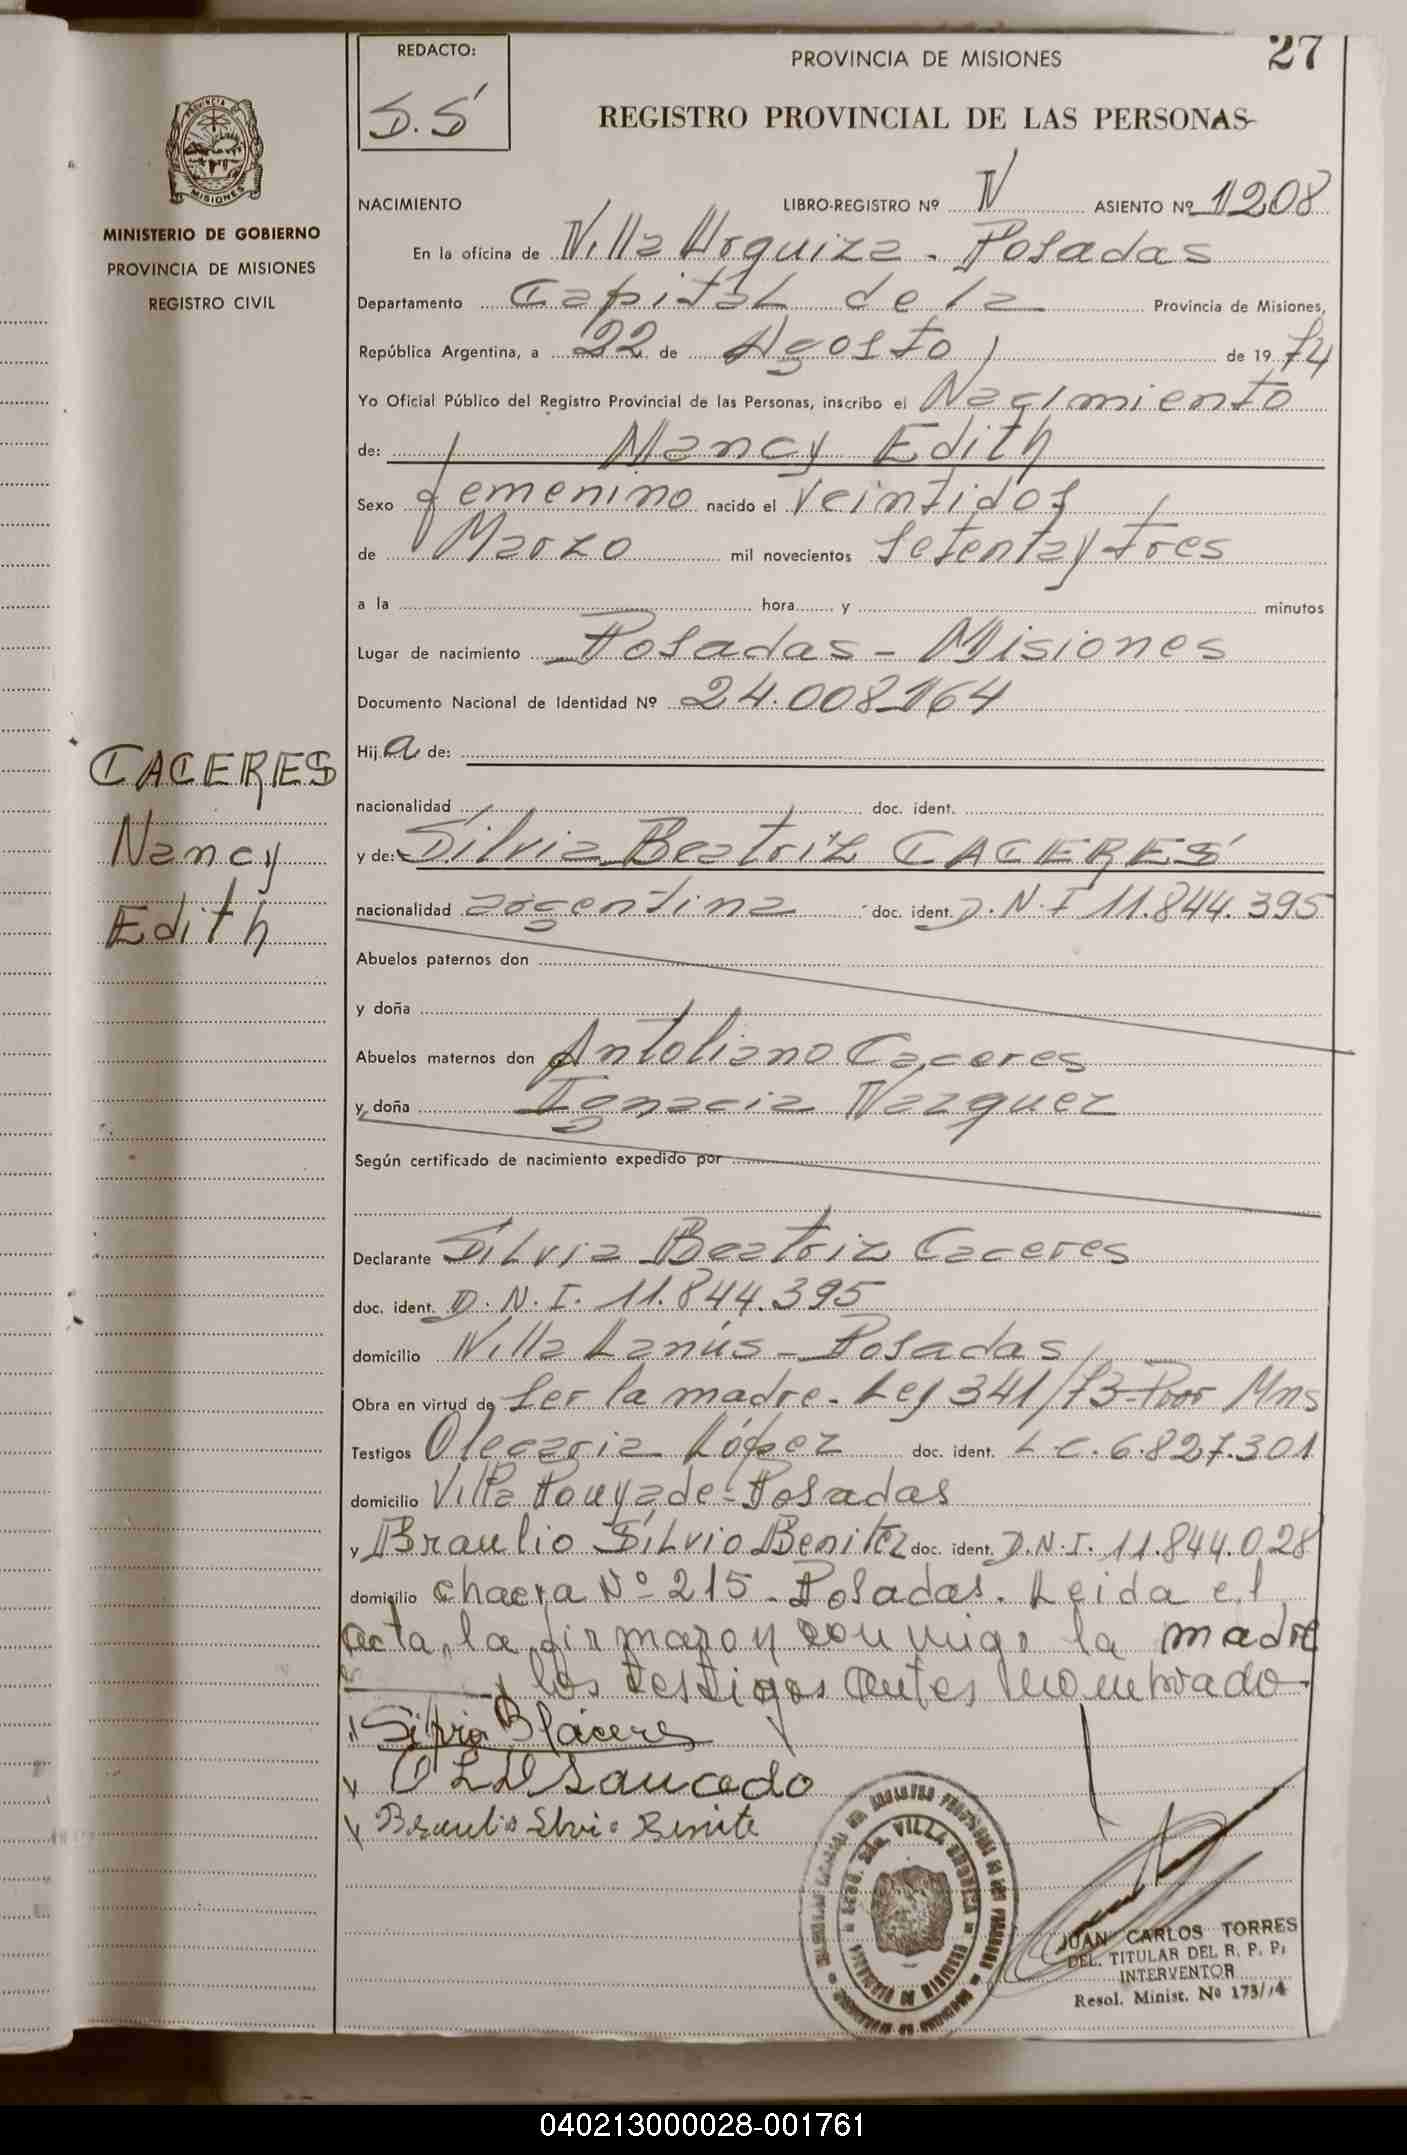 27
REDACTO:
S.S
PROVINCIA DE MISIONES
REGISTRO PROVINCIAL DE LAS PERSONAS
PROVINCIA DE
MISIONES
MINISTERIO DE GOBIERNO
PROVINCIA DE MISIONES
REGISTRO CIVIL
NACIMIENTO LIBRO-REGISTRO Nº V ASIENTO Nº 1208
En la oficina de Villa Urquiza - Posadas
Departamento Capital de la Provincia de Misiones,
República Argentina, a 22 de Agosto de 1974
Yo Oficial Público del Registro Provincial de las Personas, inscribo el Nacimiento
de: Nancy Edith
Sexo femenino nacido el Veintidos
de Marzo mil novecientos Setenta y tres
a la hora y minutos
Lugar de nacimiento Posadas - Misiones
Documento Nacional de Identidad Nº 24.008.164
Hija de:
CACERES
Nancy
Edith
nacionalidad doc. ident.
y de: Silvia Beatriz CACERES
nacionalidad argentina doc. ident. D.N.I 11.844.395
Abuelos paternos don
y doña
Abuelos maternos don Antoliano Caceres
y doña Ignacia Vazquez
Según certificado de nacimiento expedido por
Declarante Silvia Beatriz Caceres
doc. ident. D.N.I. 11.844.395
domicilio Villa Lanús - Posadas
Obra en virtud de Ser la madre - Ley 341/73 - Mns
Testigos Olegaria López doc. ident. L.C. 6.827.301
domicilio Villa Pouyade - Posadas
y Braulio Silvio Benitez doc. ident. D.N.I. 11.844.028
domicilio chacra Nº 215 - Posadas. Leida el
acta, la firmaron conmigo la madre
y los testigos antes nombrado.
Silvia B Cáceres
Saucedo
Braulio Silvio Benite
JUAN CARLOS TORRES
DEL. TITULAR DEL R. P. P.
INTERVENTOR
Resol. Minist. Nº 173/74
040213000028-001761